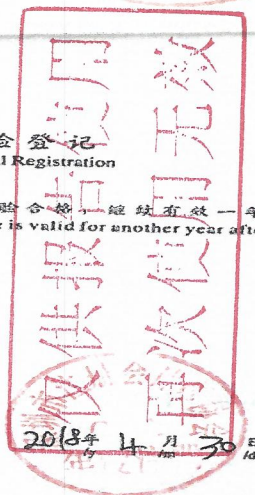 仅供报告使用
再次使用无效
验登记
l Registration
验合格，继续有效一年
e is valid for another year afte
2018年 4月 30日
/y /m /d